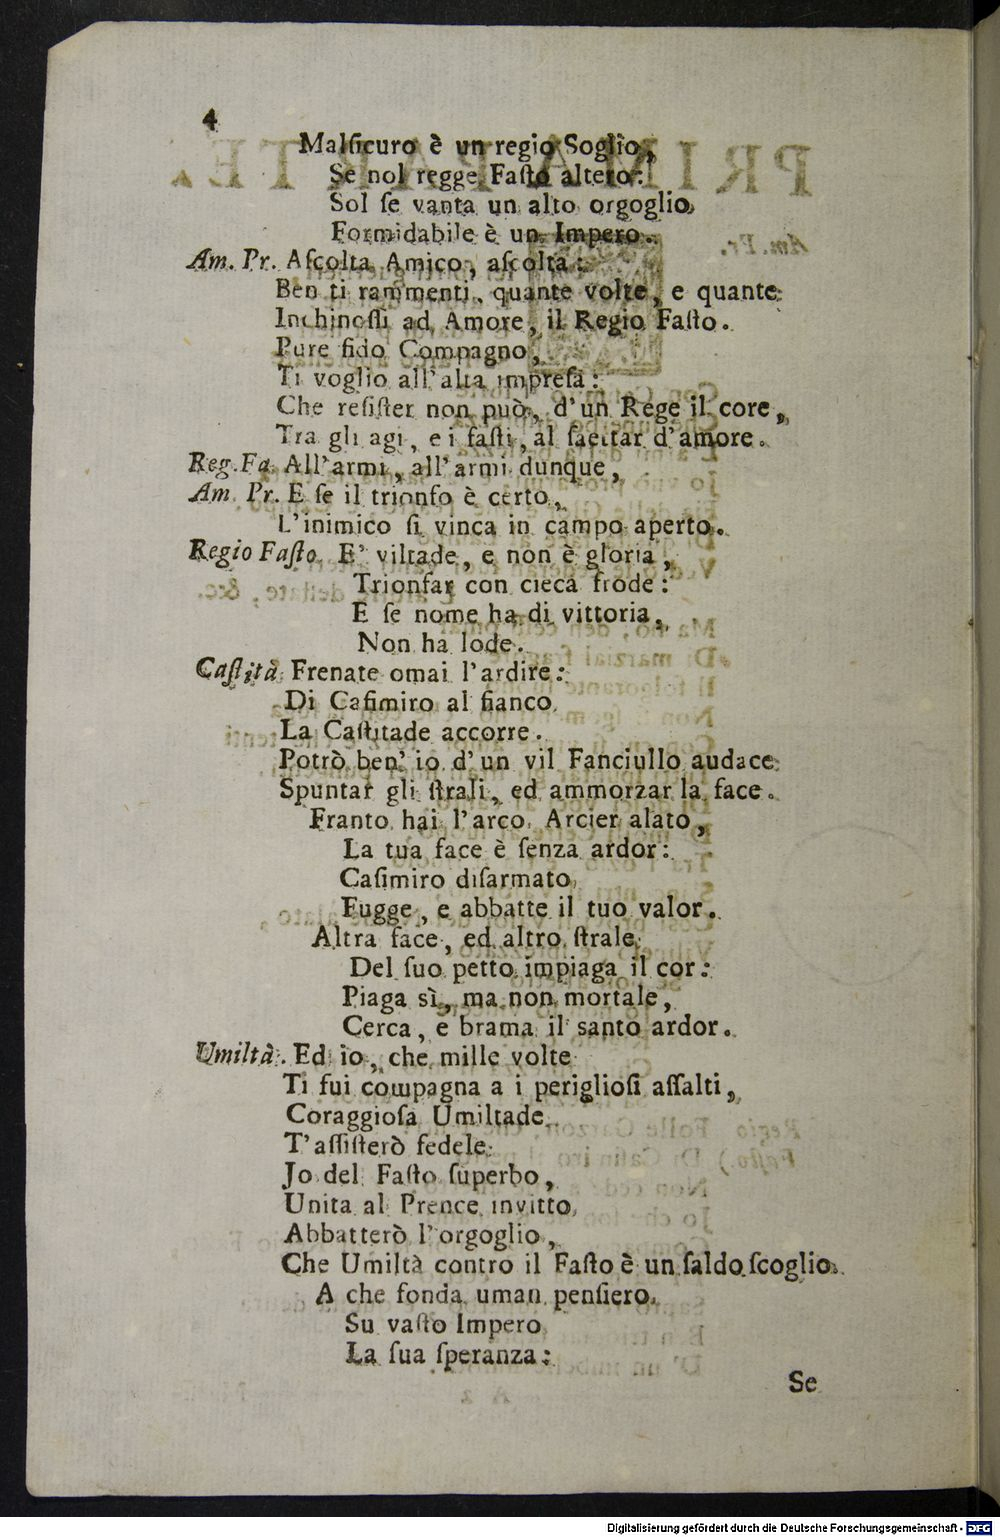 4
Malſicuro è un regio Soglio,
Se nol regge Faſto altero:
Sol ſe vanta un alto orgoglio
Formidabile è un Impero.
Am. Pr. Aſcolta Amico, aſcolta:
Ben ti rammenti, quante volte, e quante
Inchinoſſi ad Amore, il Regio Faſto.
Pure fido Compagno,
Ti voglio all'alta impreſa:
Che reſiſter non può, d'un Rege il core,
Tra gli agi, e i faſti, al ſaettar d'amore.
Reg. Fa. All'armi, all'armi dunque,
Am. Pr. E ſe il trionfo è certo,
L'inimico ſi vinca in campo aperto.
Regio Faſto. E' viltade, e non è gloria,
Trionfar con cieca frode:
E ſe nome ha di vittoria,
Non ha lode.
Caſtità. Frenate omai l'ardire:
Di Caſimiro al fianco
La Caſtitade accorre.
Potrò ben' io d' un vil Fanciullo audace
Spuntar gli ſtrali, ed ammorzar la face.
Franto hai l'arco Arcier alato,
La tua face è ſenza ardor:
Caſimiro diſarmato
Fugge, e abbatte il tuo valor.
Altra face, ed altro ſtrale
Del ſuo petto impiaga il cor:
Piaga sì, ma non mortale,
Cerca, e brama il santo ardor.
Umiltà. Ed io, che mille volte
Ti fui compagna a i periglioſi aſſalti,
Coraggioſa Umiltade
T'aſſiſterò fedele
Jo del Faſto ſuperbo,
Unita al Prence invitto
Abbatterò l'orgoglio,
Che Umiltà contro il Faſto è un ſaldo ſcoglio.
A che fonda uman penſiero
Su vaſto Impero
La ſua ſperanza:
Se
Digitalisierung gefördert durch die Deutsche Forschungsgemeinschaft - DFG